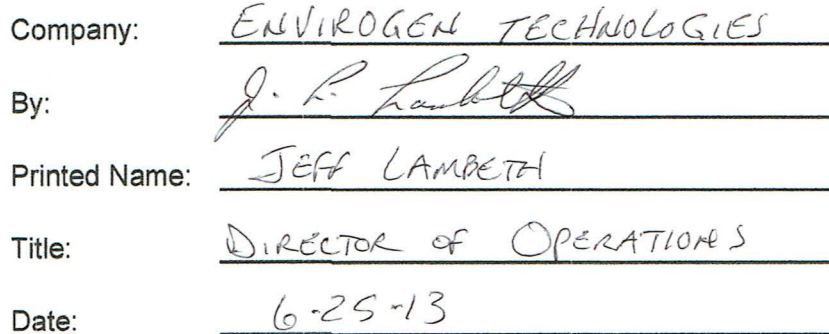 Company: ENVIROGEN TECHNOLOGIES
By: J. L. Lambeth
Printed Name: JEFF LAMBETH
Title: DIRECTOR OF OPERATIONS
Date: 6-25-13